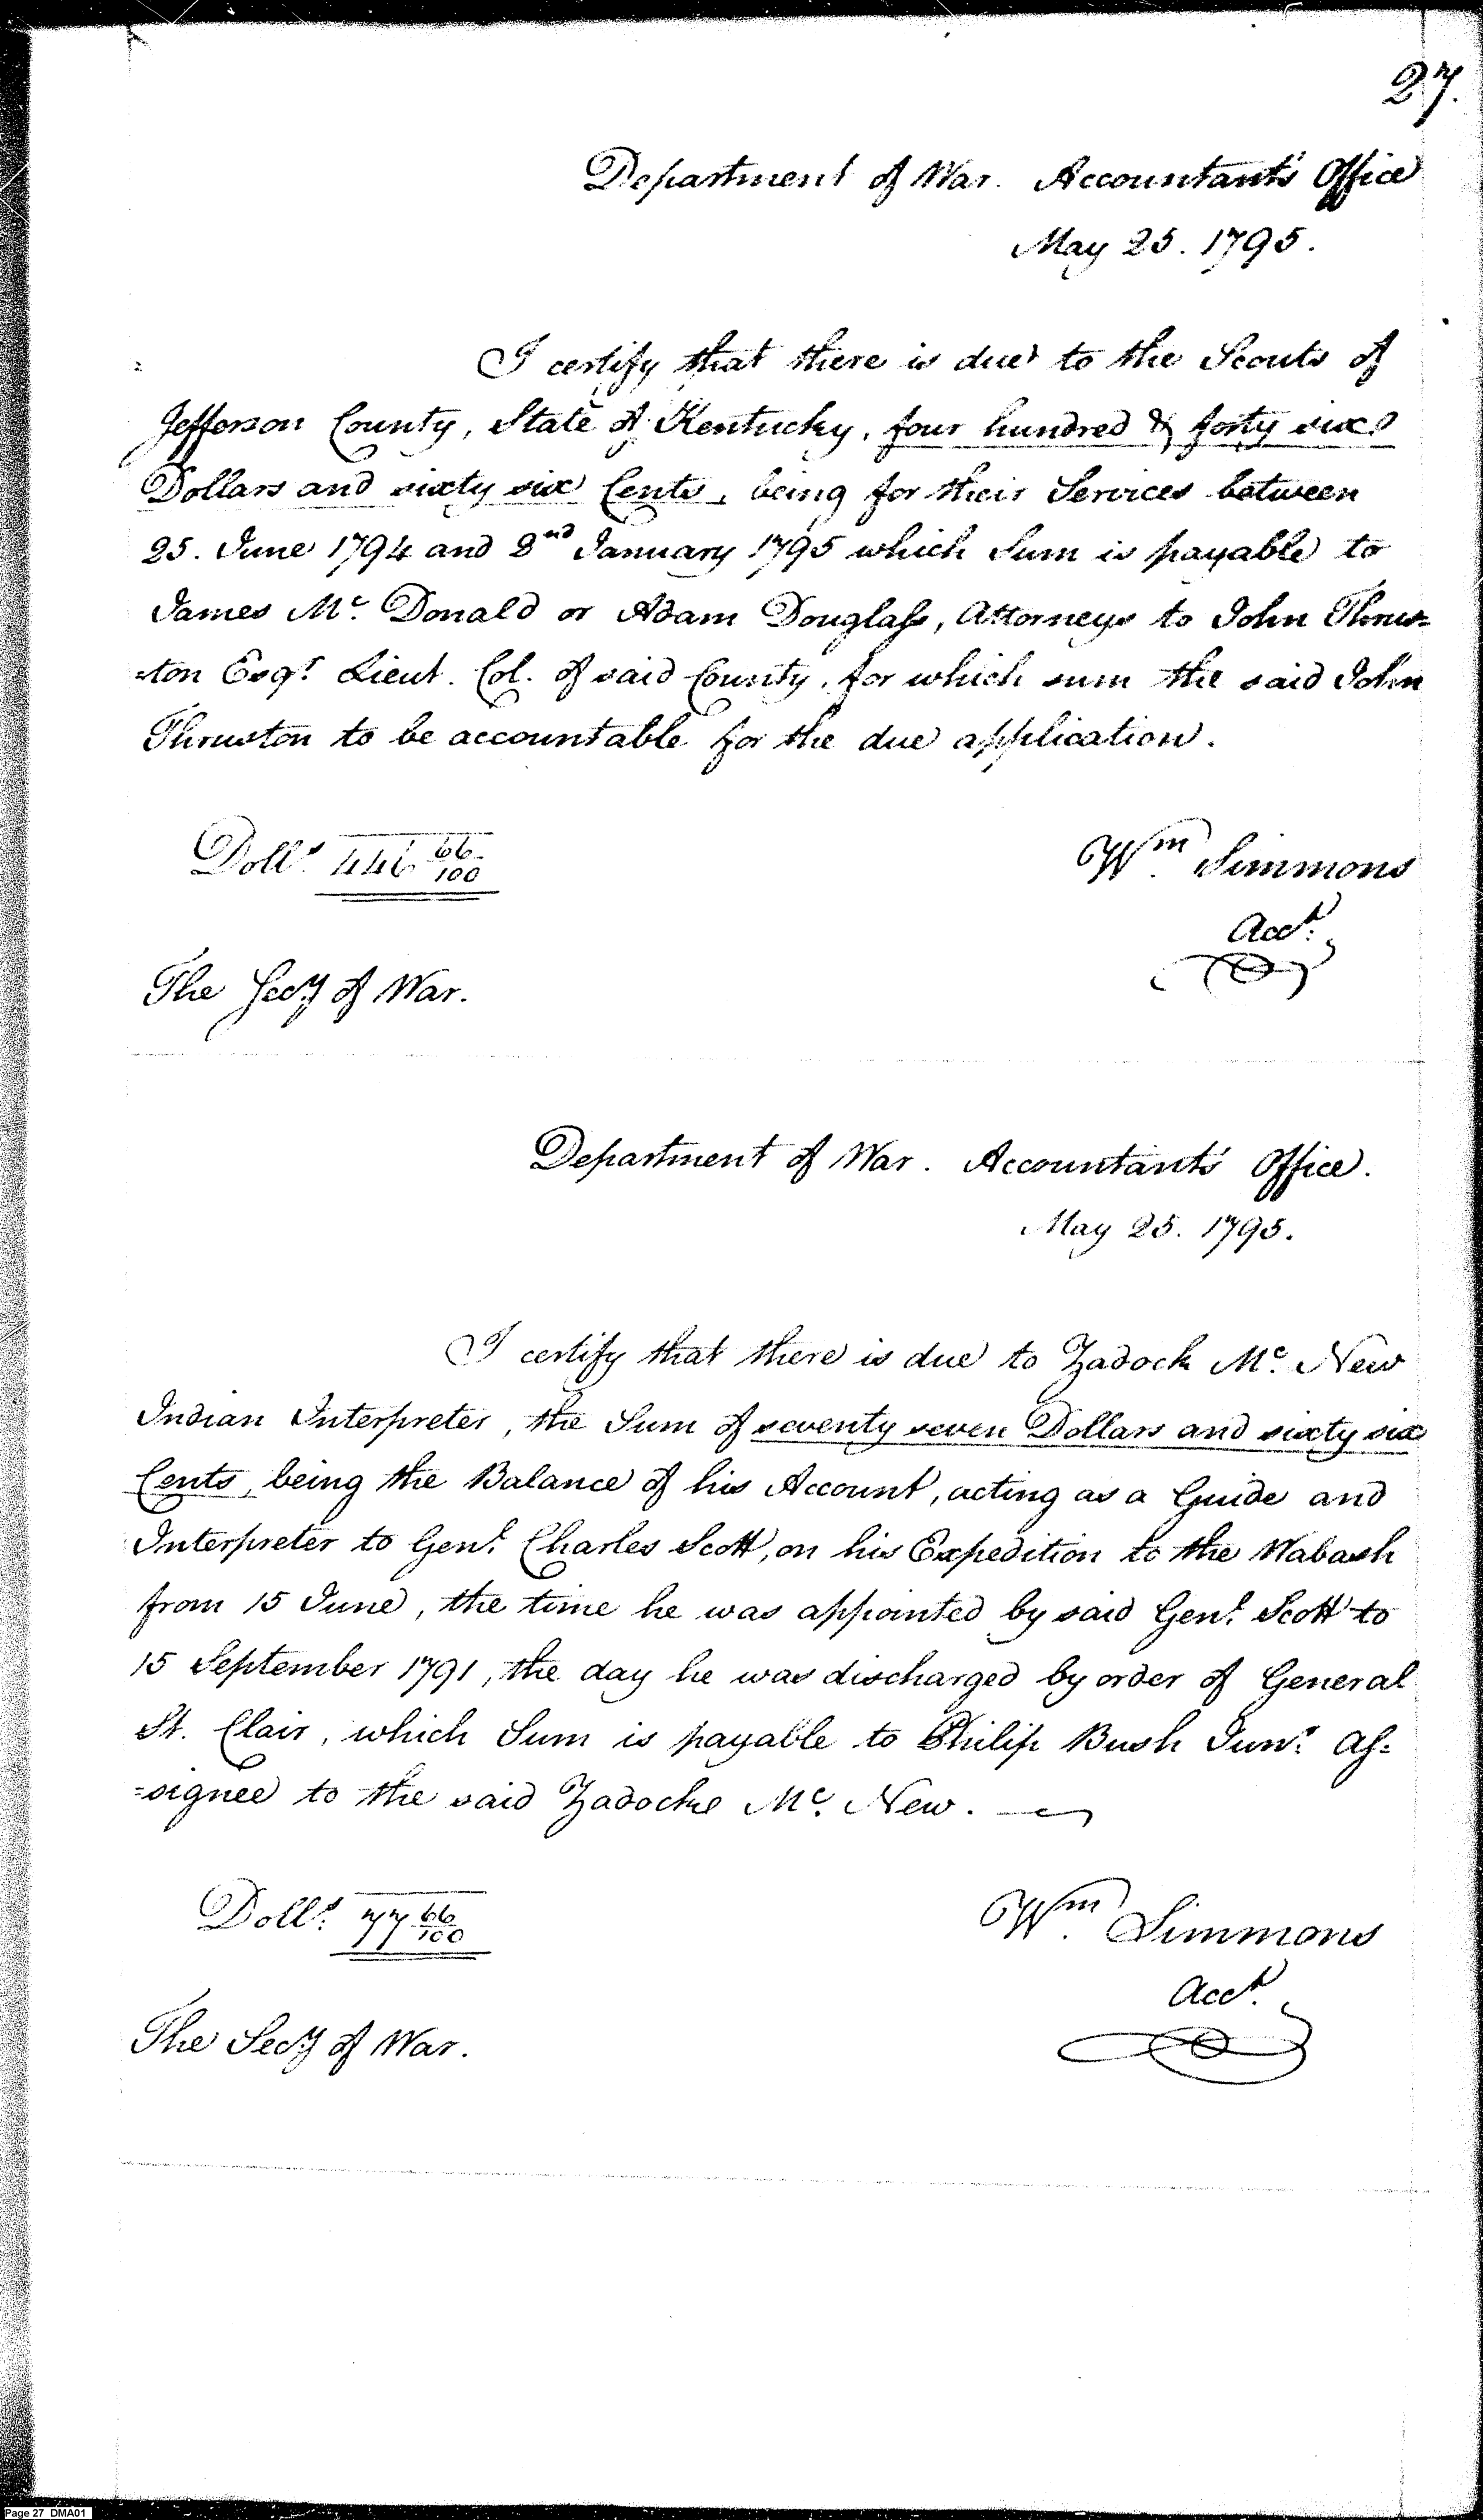 27.
Department of War. Accountant's Office
May 25. 1795.
I certify that there is due to the Scouts of
Jefferson County, State of Kentucky, four hundred & forty six
Dollars and sixty six Cents, being for their Services between
25. June 1794 and 2nd January 1795 which Sum is payable to
James Mc. Donald or Adam Douglass, Attorneys to John Thrus-
-ton Esqr. Lieut. Col. of said County, for which sum the said John
Thruston to be accountable for the due application.
Dolls. 446 66/100
Wm. Simmons
Acct.
The Secy of War.
Department of War. Accountant's Office.
May 25. 1795.
I certify that there is due to Zadock Mc. New
Indian Interpreter, the Sum of seventy seven Dollars and sixty six
Cents, being the Balance of his Account, acting as a Guide and
Interpreter to Genl. Charles Scott, on his Expedition to the Wabash
from 15 June, the time he was appointed by said Genl. Scott to
15 September 1791, the day he was discharged by order of General
St. Clair, which Sum is payable to Philip Bush Junr. As=
=signee to the said Zadocke Mc. New.
Dolls. 77 66/100
Wm. Simmons
Acct.
The Secy of War.
Page 27 DMA01